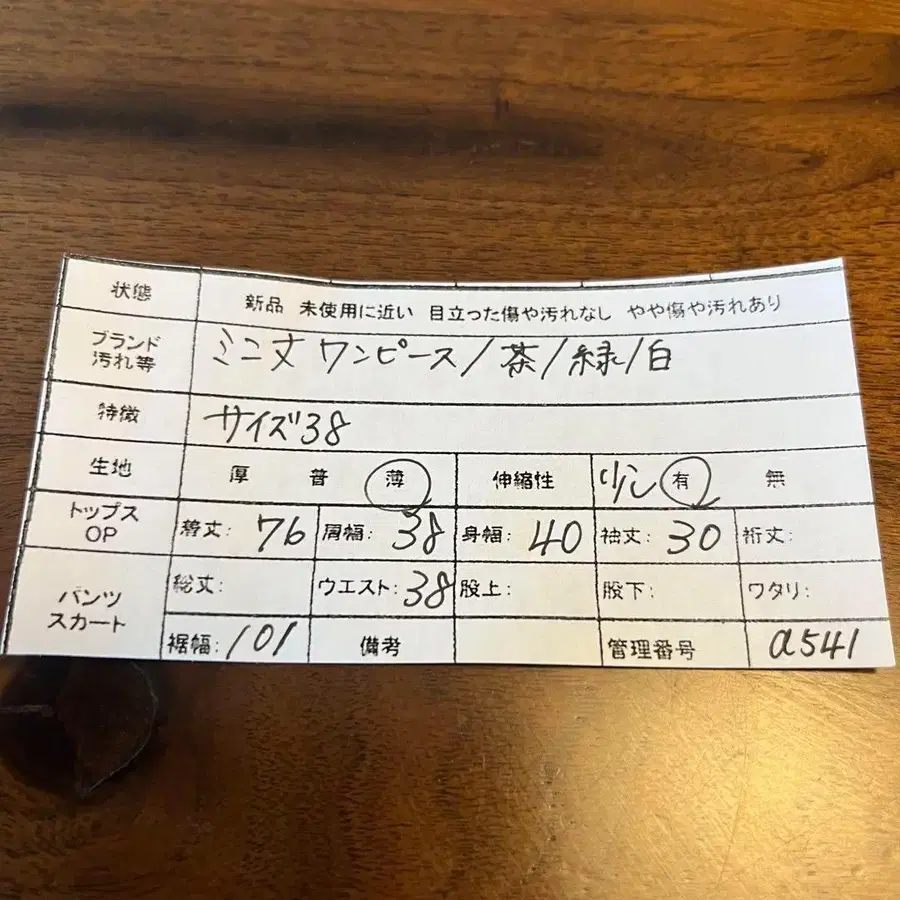 状態 新品 未使用に近い 目立った傷や汚れなし やや傷や汚れあり
ブランド 汚れ等 ミニ丈 ワンピース/茶/緑/白
特徴 サイズ38
生地 厚 普 薄 伸縮性 少し 有 無
トップス OP 着丈: 76 肩幅: 38 身幅: 40 袖丈: 30 裄丈:
パンツ スカート 総丈: ウエスト: 38 股上: 股下: ワタリ:
裾幅: 101 備考 管理番号 a541